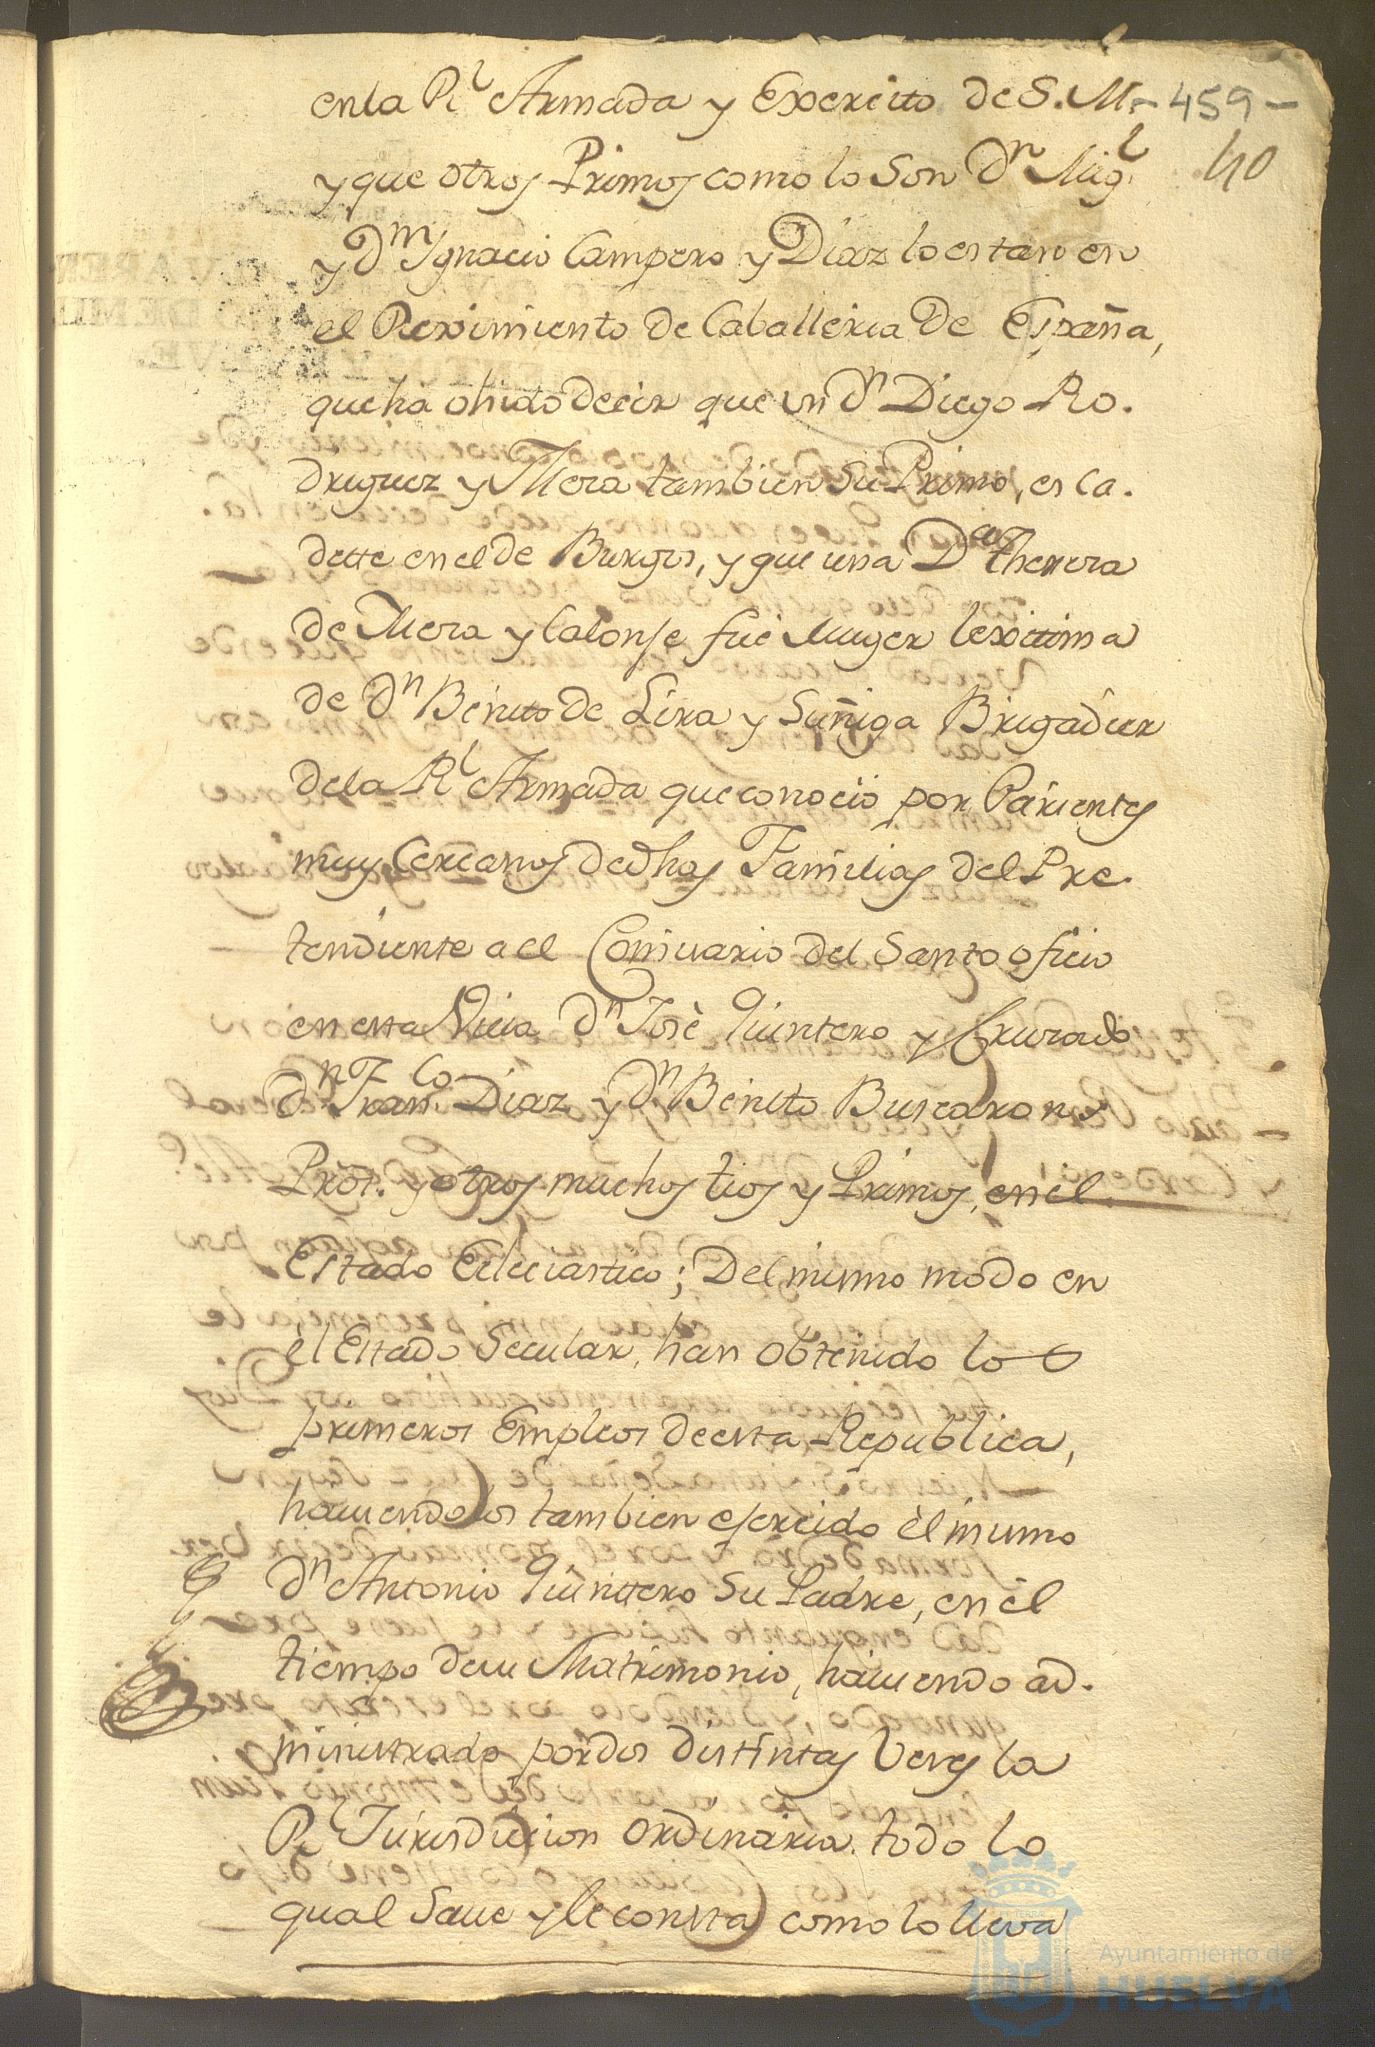 en la Rl. Armada y Exercito de S. M. - 459 -
y que otros Primos como lo Son Dn. Migl. 40
y Dn. Ygnacio Campero y Diaz lo estan en
el Reximiento de Caballeria de España,
que ha ohido decir que un Dn. Diego Ro-
driguez y Mora tambien Su Primo, es Ca-
dette en el de Burgos, y que una Da. Theresa
de Mora y Calonje fue Muger lexitima
de Dn. Benito de Lira y Suñiga Brigadier
de la Rl. Armada que conoció por Parientes
muy Cercanos de dhas Familias del Pre-
tendiente a el Comisario del Santo oficio
en esta Villa Dn. Josè Quintero y Cruzado
Dn. Franco. Diaz y Dn. Benito Buscaxons
Pròs. y otros muchos tios y Primos, en el
Estado Eclesiastico; Del mismo modo en
èl Estado Secular, han obtenido los
primeros Empleos de esta Republica,
haviendolos tambien ejercido èl mismo
Dn. Antonio Quintero Su Padre, en èl
tiempo de su Matrimonio, haviendo ad-
ministrado por dos distintas Veses la
Rl. Jurisdiccion ordinaria. todo lo
qual Save y le consta como lo lleva
Ayuntamiento de
HUELVA